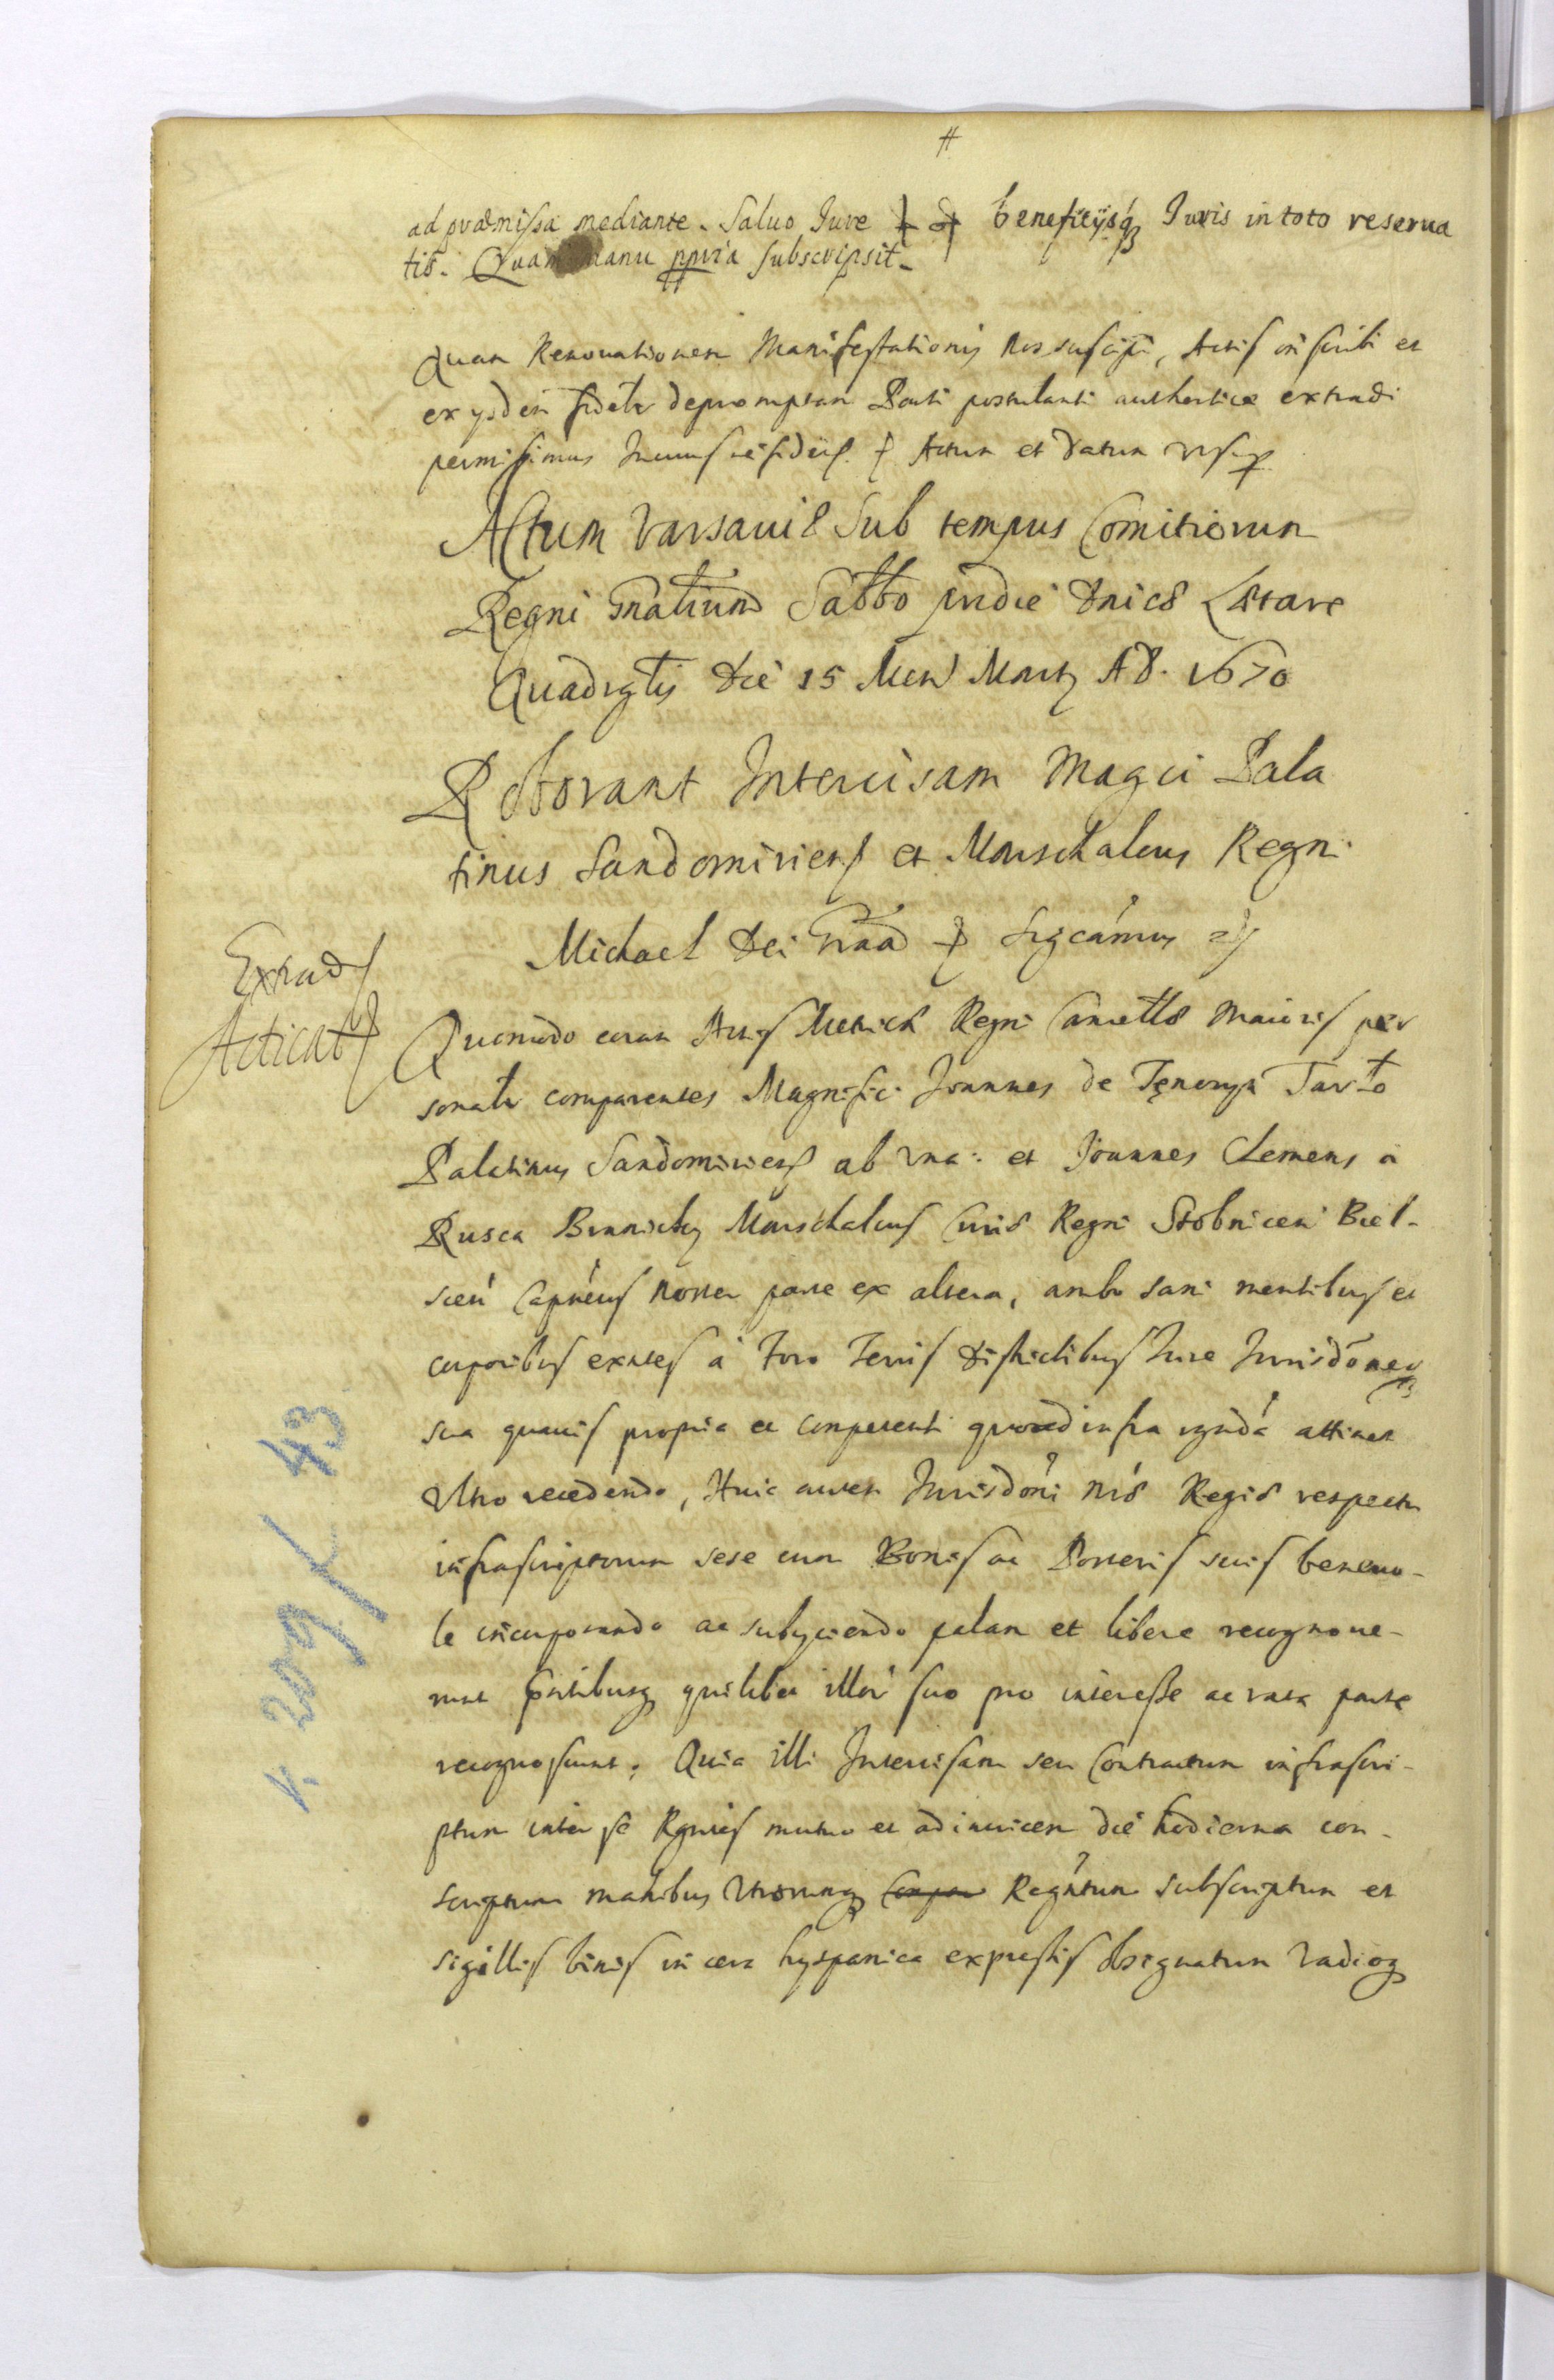 #
ad præmissa mediante. Saluo Iure & beneficijsq Iuris in toto reserua
tis. Quam manu ppria subscripsit.
Quam Renouationem Manifestationis Nos suscipi, Actis inscribi et
ex ijsdem fidelr depromptam Parti postulanti authentice extradi
permisimus In cuius rei fidem. Actum et Datum vt sup
Actum Varsauiæ Sub tempus Comitiorum
Regni Gnalium Sabbo pridie Dnicæ Lætare
Quadrglis die 15 Mens Martij AD. 1670
Roborant Intercisam Magci Pala
tinus Sandomiriens et Marschalcus Regni
Michael Dei Graa Sigcamus
Extrad
Acticat
Quomodo coram Actis Metrices Regni Cancellæ Maioris per
sonalr comparentes Magnifici Joannes de Tęnczyn Tarło
Palatinus Sandomiriens ab vna: et Joannes Clemens à
Rusca Branicky Marschalcus Curiæ Regni Stobnicen Biel-
scen Capneus noster parte ex altera, ambo sani mentibus et
corporibus existes à foro Terris Districtibus Iure Jurisdoneq
sua quauis propria et competenti quoad infra rgnda attinet
Vltro recedendo, Huic autem Jurisdoni nræ Regiæ respectu
infrascriptorum sese cum Bonis ac Posteris suis beneuo-
le incorporando ac subyciendo palam et libere recognoue-
runt pntibusq quilibet illor suo pro interesse ac rata parte
recognoscunt. Quia illi Intercisam seu Contractum infrascri-
ptum inter se Rgntes mutuo et adinuicem die hodierna con-
scriptum manibus Vtrorumq Rcgntium subscriptum et
sigillis binis in cera hyspanica expressis obsignatum Vadioq
k. 209 / 43